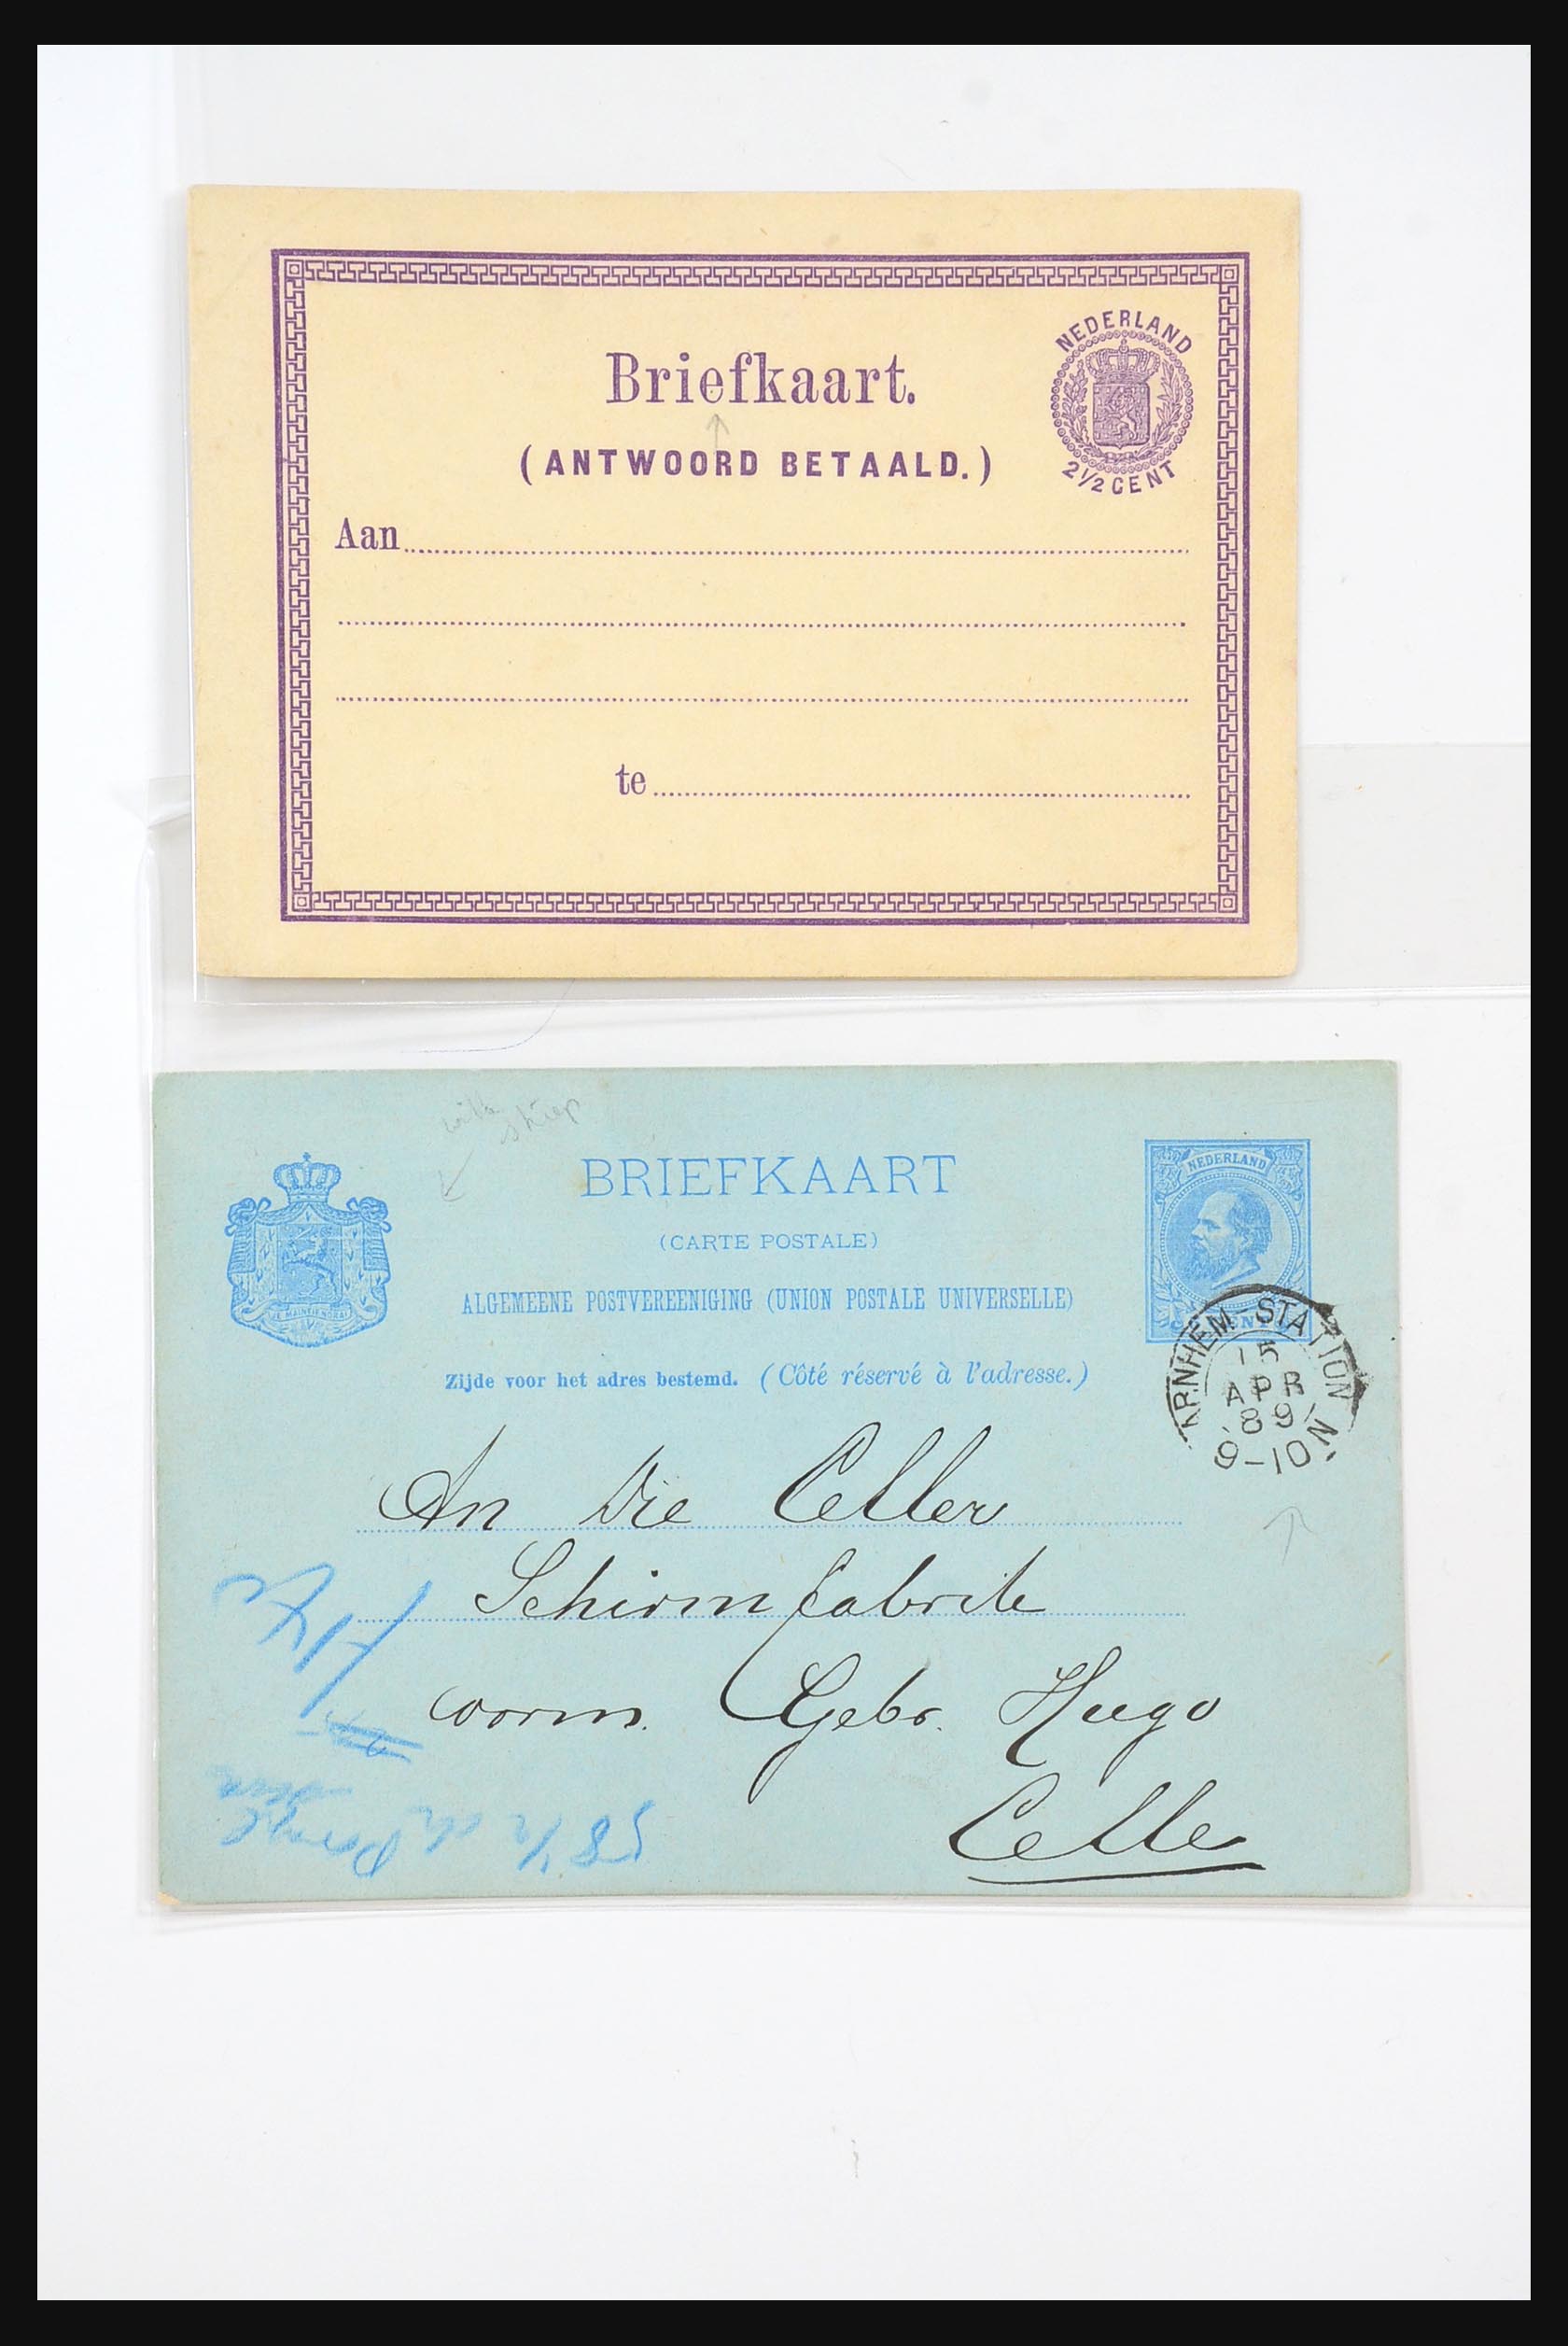 NEDERLAND
Briefkaart.
(ANTWOORD BETAALD.)
2½ CENT
Aan
te
BRIEFKAART
NEDERLAND
(CARTE POSTALE)
ALGEMEENE POSTVEREENIGING (UNION POSTALE UNIVERSELLE)
JE MAINTIENDRAI
Zijde voor het adres bestemd. (Côté réservé à l'adresse.)
ARNHEM-STATION
15
APR
89
9-10 N.
An die Celler
Schirmfabrik
vorm. Gebr. Hugo
Celle